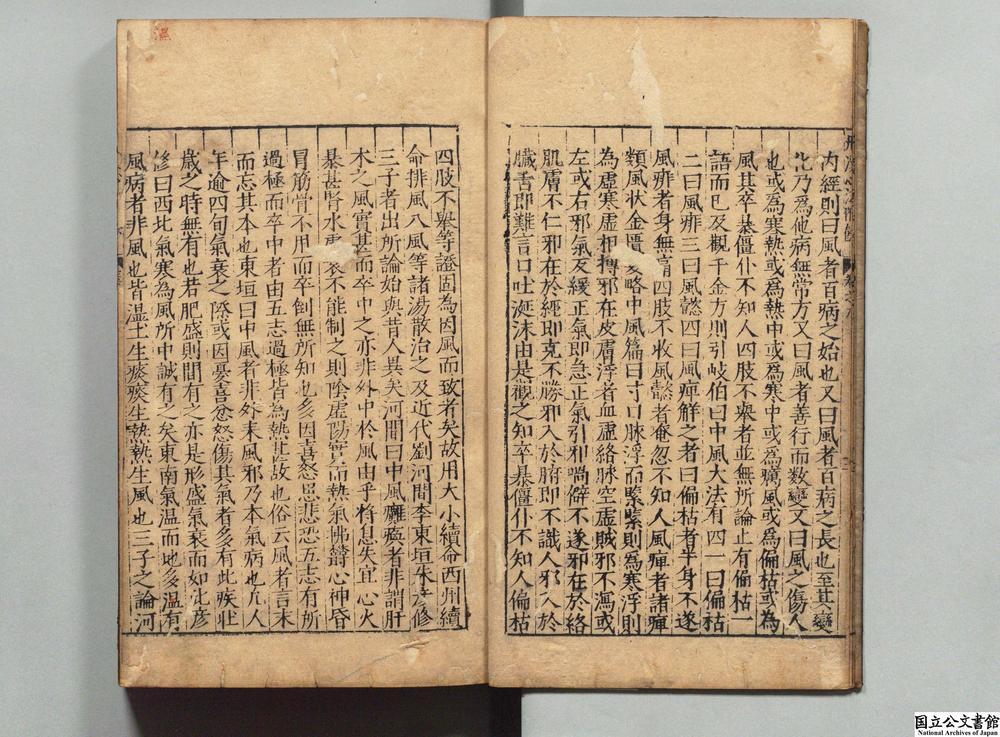 内經則曰風者百病之始也又曰風者百病之長也至其變
化乃為他病無常方又曰風者善行而数變又曰風之傷人
也或為寒熱或為熱中或為寒中或為癘風或為偏枯或為
風其卒暴僵仆不知人四肢不舉者並無所論止有偏枯一
語而已及觀千金方則引岐伯曰中風大法有四一曰偏枯
二曰風痱三曰風懿四曰風痺解之者曰偏枯者半身不遂
風痱者身無痛四肢不收風懿者奄忽不知人風痺者諸痺
類風状金匱要略中風篇曰寸口脉浮而緊緊則為寒浮則
為虚寒虚相搏邪在皮膚浮者血虚絡脉空虚賊邪不瀉或
左或右邪氣反緩正氣即急正氣引邪喎僻不遂邪在於絡
肌膚不仁邪在於經即㐹不勝邪入於腑即不識人邪入於
臓舌即難言口吐涎沫由是觀之知卒暴僵仆不知人偏枯
四肢不舉等證固為因風而致者矣故用大小續命西州續
命排風八風等諸湯散治之及近代劉河間李東垣朱彦修
三子者出所論始與昔人異矣河間曰中風癱瘓者非謂肝
木之風實甚而卒中之亦非外中於風由乎將息失宜心火
暴甚腎水虚衰不能制之則陰虚陽實而熱氣怫欝心神昏
冒筋骨不用而卒倒無所知也多因喜怒思悲恐五志有所
過極而卒中者由五志過極皆為熱甚故也俗云風者言末
而忘其本也東垣曰中風者非外来風邪乃本氣病也凡人
年逾四旬氣衰之際或因憂喜忿怒傷其氣者多有此疾壮
歳之時無有也若肥盛則間有之亦是形盛氣衰而如此彦
修曰西北氣寒為風所中誠有之矣東南氣温而地多濕有
風病者非風也皆濕土生痰痰生熱熱生風也三子之論河
国立公文書館
National Archives of Japan